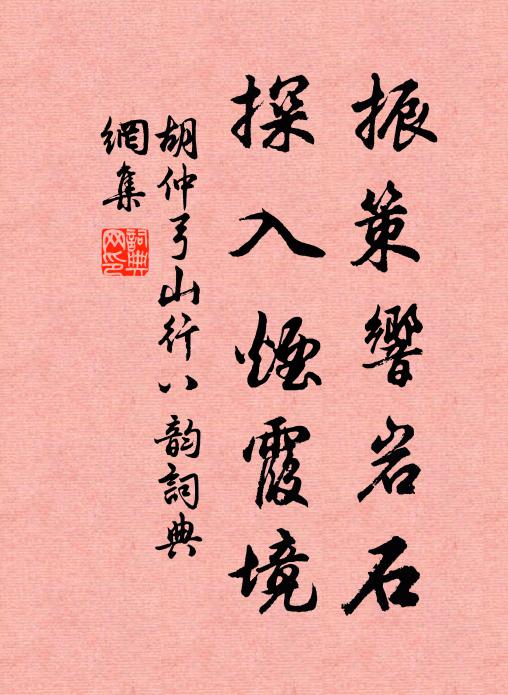 振策響岩石
探入煙霞境
胡仲弓山行八韵詞典
網集
詞典網印